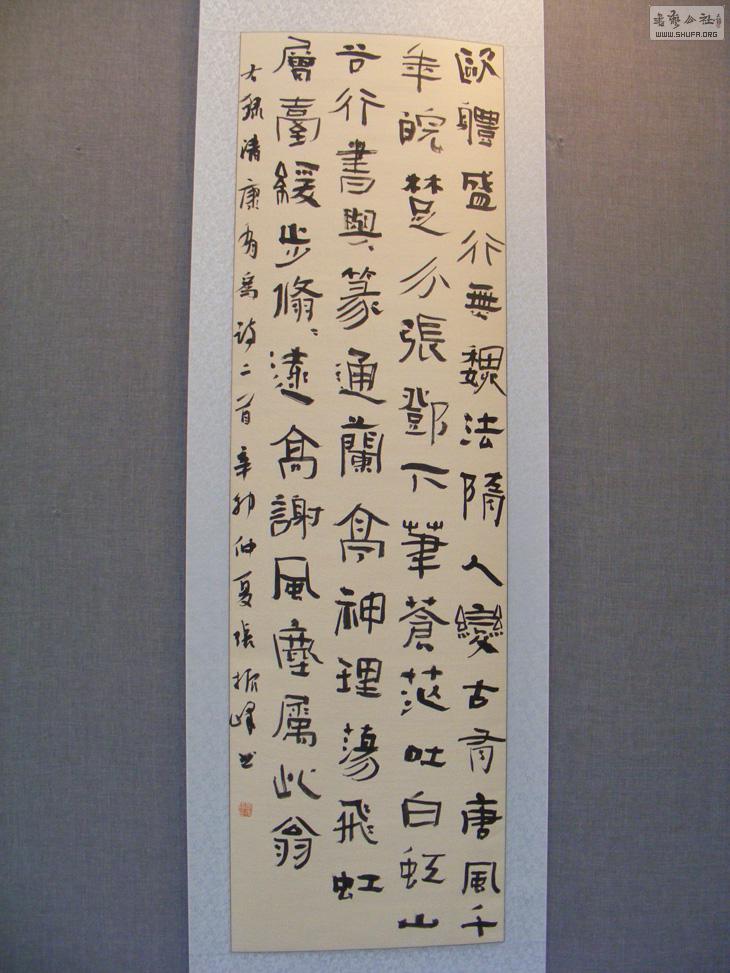 歐體盛行無魏法隋人變古有唐風千
年皖楚分張鄧下筆蒼茫吐白虹山
谷行書與篆通蘭亭神理蕩飛虹
層臺緩步脩、遠高謝風塵屬此翁
右録清康有為詩二首辛卯仲夏張振峰書
書藝公社
WWW.SHUFA.ORG